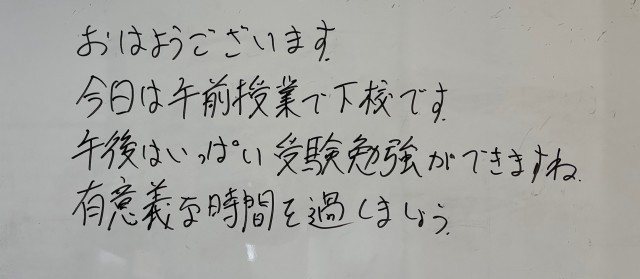 おはようございます.
今日は午前授業で下校です.
午後はいっぱい受験勉強ができますね.
有意義な時間を過しましょう.